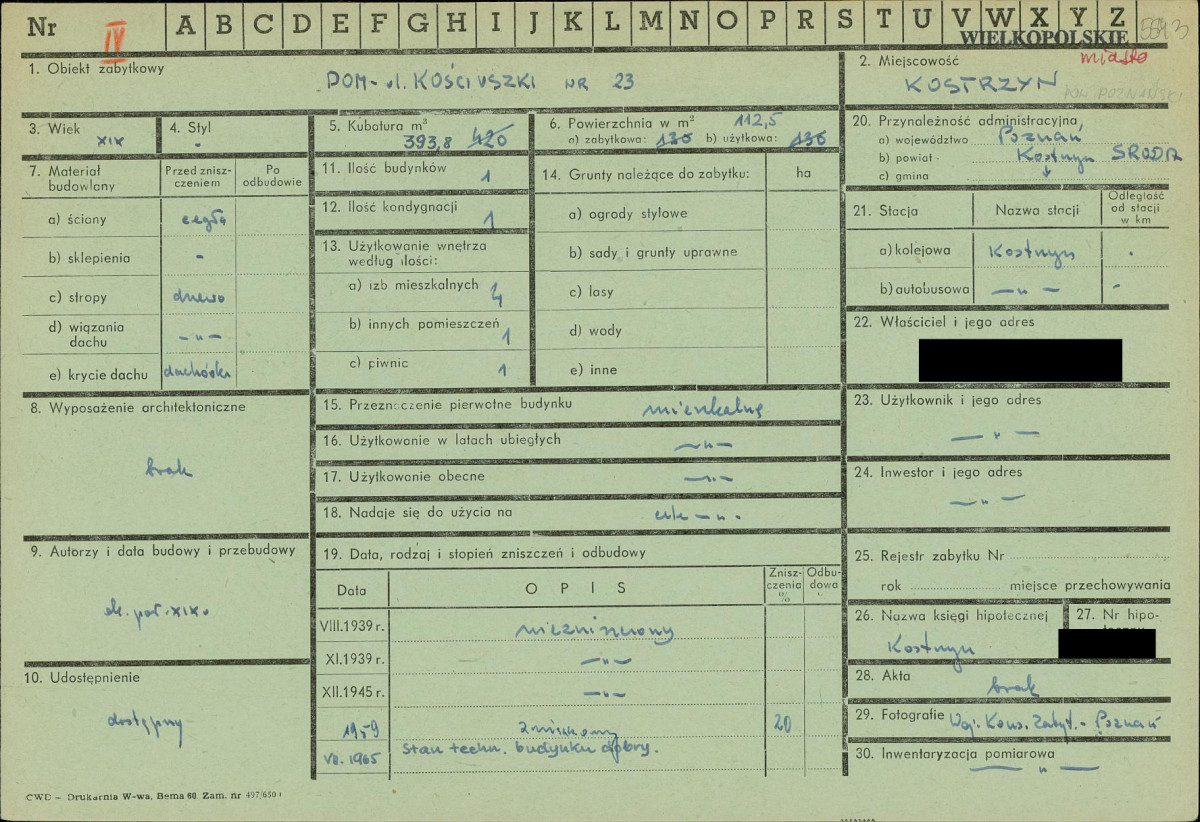 Nr IV A B C D E F G H I J K L M N O P R S T U V W X Y Z
WIELKOPOLSKIE
miasto
1. Obiekt zabytkowy DOM - ul. KOŚCIUSZKI NR 23
2. Miejscowość
KOSTRZYN POW. POZNAŃSKI
3. Wiek XIX
4. Styl -
5. Kubatura m³ 393,8 420
6. Powierzchnia w m² 112,5
a) zabytkowa: 136 b) użytkowa: 136
7. Materiał budowlany
Przed zniszczeniem
Po odbudowie
a) ściany cegła
b) sklepienia -
c) stropy drewno
d) wiązania dachu -"-
e) krycie dachu dachówka
8. Wyposażenie architektoniczne
brak
9. Autorzy i data budowy i przebudowy
ok. poł. XIX w
10. Udostępnienie
dostępny
11. Ilość budynków 1
12. Ilość kondygnacji 1
13. Użytkowanie wnętrza
według ilości:
a) izb mieszkalnych 4
b) innych pomieszczeń 1
c) piwnic 1
14. Grunty należące do zabytku: ha
a) ogrody stylowe
b) sady i grunty uprawne
c) lasy
d) wody
e) inne
15. Przeznaczenie pierwotne budynku mieszkalne
16. Użytkowanie w latach ubiegłych -"-
17. Użytkowanie obecne -"-
18. Nadaje się do użycia na -"-
19. Data, rodzaj i stopień zniszczeń i odbudowy
Data OPIS Zniszczenia % Odbudowa %
VIII.1939 r. niezniszczony
XI.1939 r. -"-
XII.1945 r. -"-
1959 zniszczony 20
VII. 1965 Stan techn. budynku dobry.
20. Przynależność administracyjna,
a) województwo Poznań
b) powiat Kostrzyn ŚRODA
c) gmina
21. Stacja Nazwa stacji Odległość od stacji w km
a) kolejowa Kostrzyn .
b) autobusowa -"- -
22. Właściciel i jego adres
23. Użytkownik i jego adres
-"-
24. Inwestor i jego adres
-"-
25. Rejestr zabytku Nr
rok miejsce przechowywania
26. Nazwa księgi hipotecznej
Kostrzyn
27. Nr hipo-
28. Akta brak
29. Fotografie Woj. Kons. Zabyt. - Poznań
30. Inwentaryzacja pomiarowa
-"-
CWD – Drukarnia W-wa, Bema 60. Zam. nr 497/650